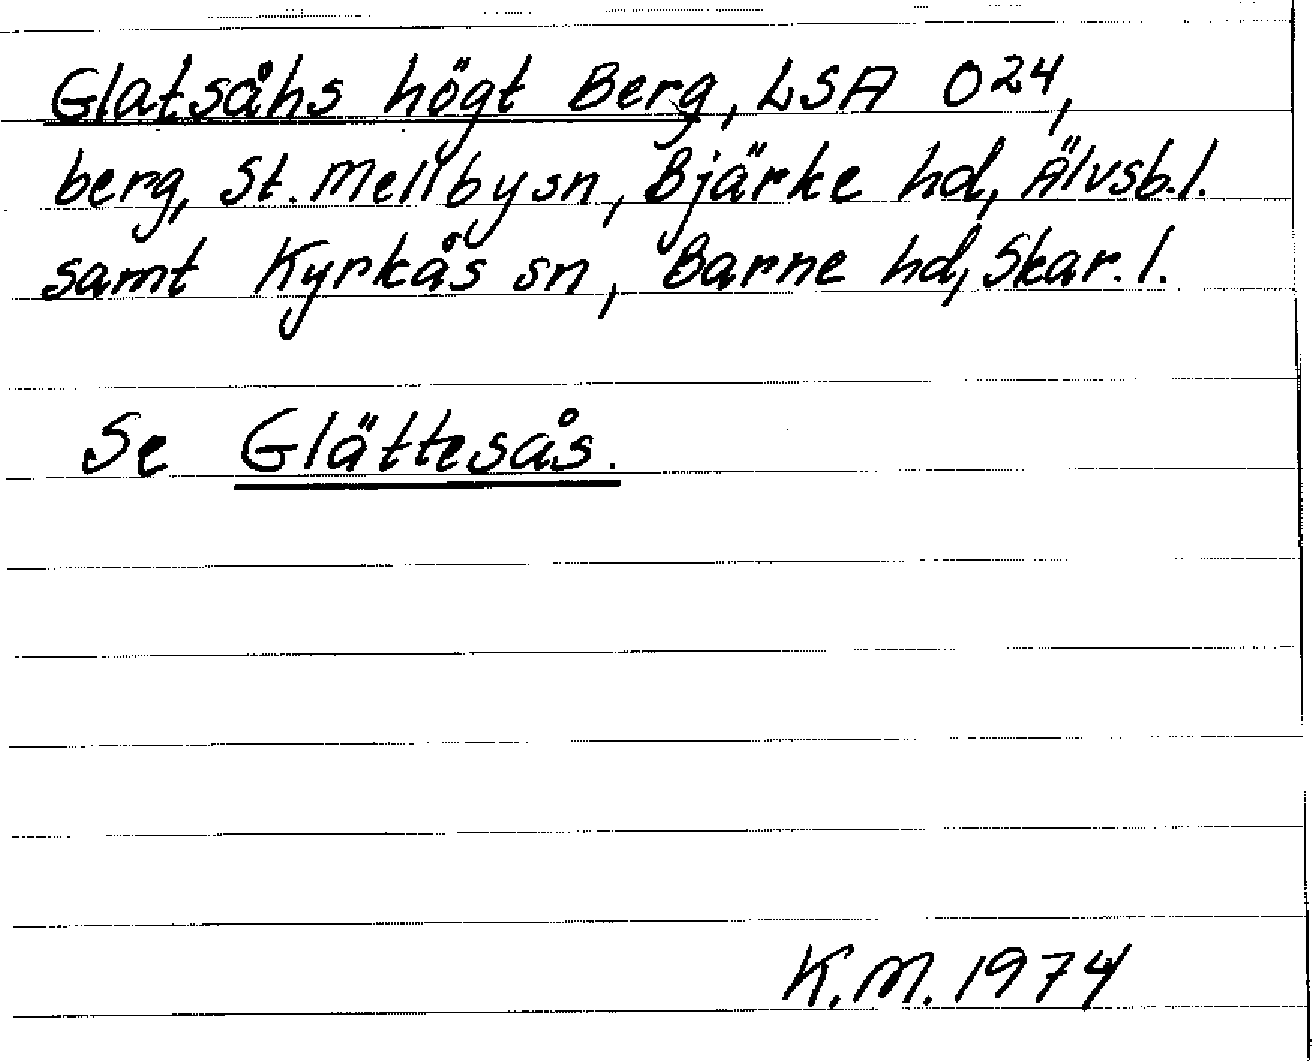 Glatsåhs högt Berg, LSA O24,
berg, St. Mellby sn, Bjärke hd, Älvsb. l.
samt Kyrkås sn, Barne hd, Skar. l.
Se Glättesås.
K.M. 1974